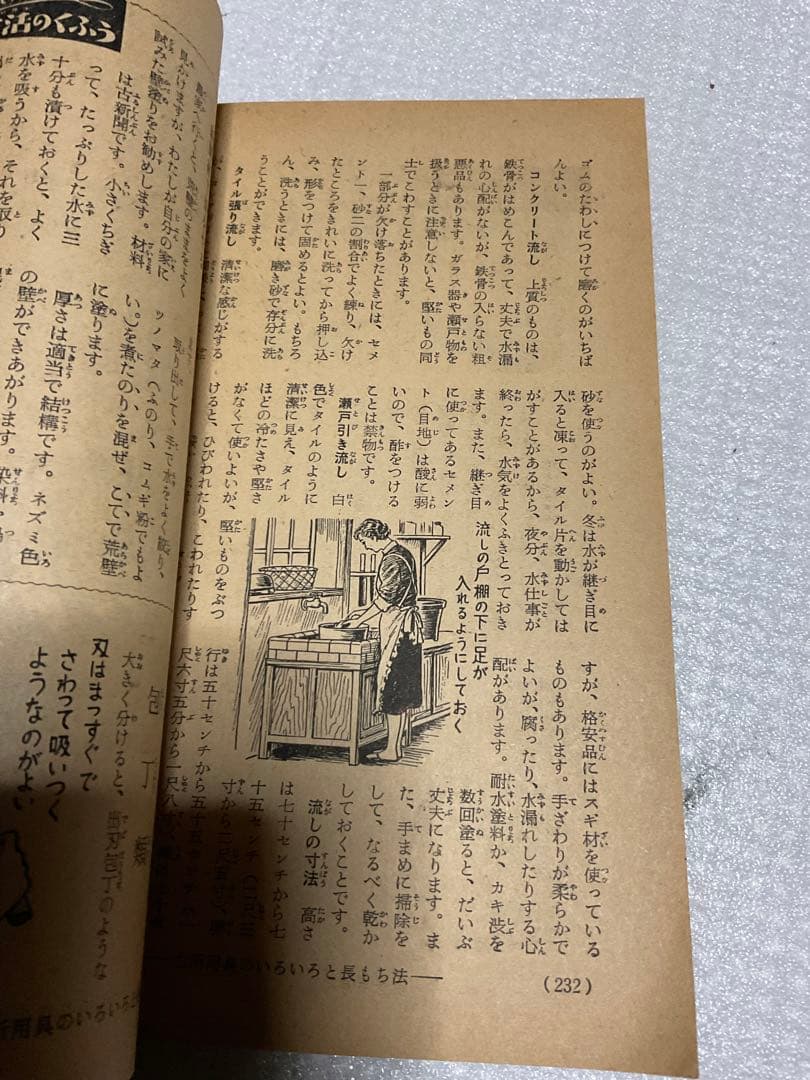 ゴムのたわしにつけて磨くのがいちば
んよい。
コンクリート流し 上質のものは、
鉄骨がはめこんであって、丈夫で水漏
れの心配がないが、鉄骨の入らない粗
悪品もあります。ガラス器や瀬戸物を
扱うときに注意しないと、堅いもの同
士でこわすことがあります。
一部分が欠け落ちたときには、セメ
ント一、砂二の割合でよく練り、欠け
たところをきれいに洗ってから押し込
み、形をつけて固めるとよい。もちろ
ん、洗うときには、磨き砂で存分に洗
うことができます。
タイル張り流し 清潔な感じがする
砂を使うのがよい。冬は水が継ぎ目に
入ると凍って、タイル片を動かしては
がすことがあるから、夜分、水仕事が
終ったら、水気をよくふきとっておき
ます。また、継ぎ目
に使ってあるセメン
ト(目地)は酸に弱
いので、酢をつける
ことは禁物です。
瀬戸引き流し 白
色でタイルのように
清潔に見え、タイル
ほどの冷たさや堅さ
がなくて使いよいが、堅いものをぶつ
けると、ひびわれたり、こわれたりす
流しの戸棚の下に足が
入れるようにしておく
すが、格安品にはスギ材を使っている
ものもあります。手ざわりが柔らかで
よいが、腐ったり、水漏れしたりする心
配があります。耐水塗料か、カキ渋を
数回塗ると、だいぶ
丈夫になります。ま
た、手まめに掃除を
して、なるべく乾か
しておくことです。
流しの寸法 高さ
は七十センチから七
十五センチ
行は五十センチから五十
尺六寸五分から一尺八寸
用具のいろいろと長もち法――
(232)
活のくふう
見かけますが、わたしが自分の家に
試みた壁塗りをお勧めします。材料
は古新聞です。小さくちぎ
って、たっぷりした水に三
十分も漬けておくと、よく
水を吸うから、それを取り
取り出して、手で水をよく絞り、
ツノマタ(ふのり、コムギ粉でもよ
い。)を煮たのりを混ぜ、こてで荒壁
に塗ります。
厚さは適当で結構です。ネズミ色
の壁ができあがります。染料
包丁
大きく分けると、出刃包丁のような
刃はまっすぐで
さわって吸いつく
ようなのがよい
用具のいろいろと